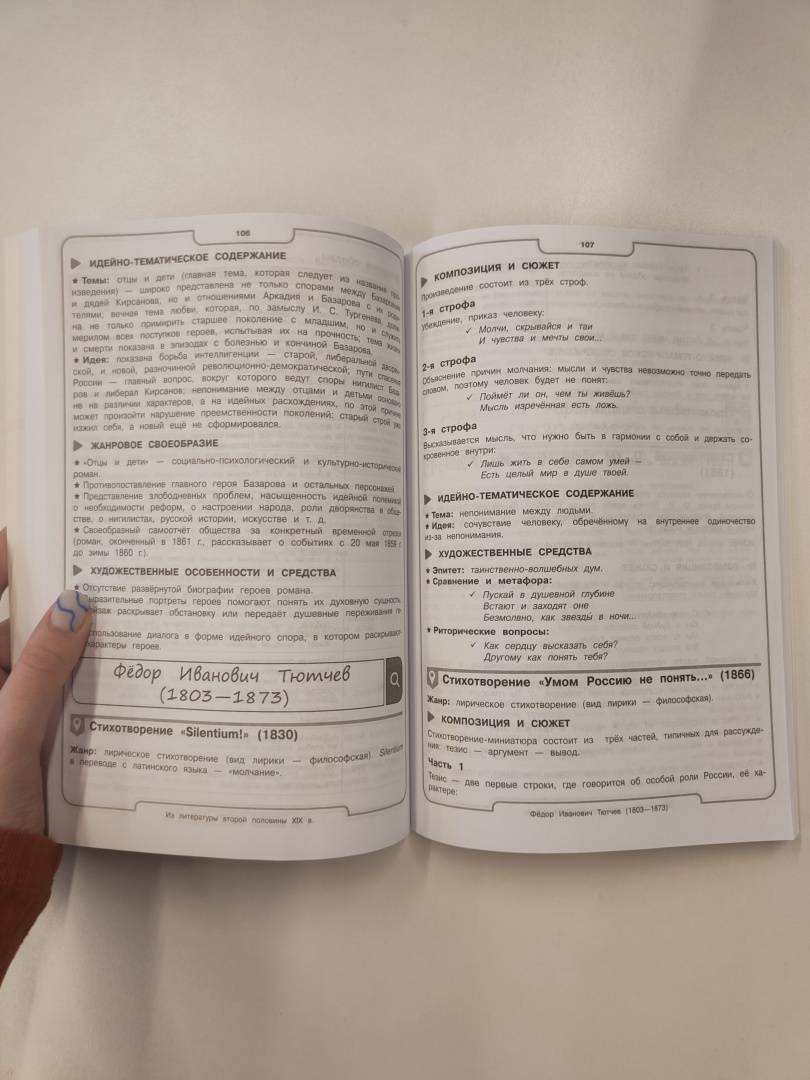 106
ИДЕЙНО-ТЕМАТИЧЕСКОЕ СОДЕРЖАНИЕ
★ Темы: отцы и дети (главная тема, которая следует из названия про-
изведения) — широко представлена не только спорами между Базаровым
и дядей Кирсанова, но и отношениями Аркадия и Базарова с их роди-
телями; вечная тема любви, которая, по замыслу И. С. Тургенева, долж-
на не только примирить старшее поколение с младшим, но и служить
мерилом всех поступков героев, испытывая их на прочность; тема жизни
и смерти показана в эпизодах с болезнью и кончиной Базарова.
★ Идея: показана борьба интеллигенции — старой, либеральной дворян-
ской, и новой, разночинной революционно-демократической; пути спасения
России — главный вопрос, вокруг которого ведут споры нигилист База-
ров и либерал Кирсанов; непонимание между отцами и детьми основано
не на различии характеров, а на идейных расхождениях, по этой причине
может произойти нарушение преемственности поколений: старый строй уже
изжил себя, а новый ещё не сформировался.
ЖАНРОВОЕ СВОЕОБРАЗИЕ
★ «Отцы и дети» — социально-психологический и культурно-исторический
роман.
★ Противопоставление главного героя Базарова и остальных персонажей.
★ Представление злободневных проблем, насыщенность идейной полемикой
о необходимости реформ, о настроении народа, роли дворянства в обще-
стве, о нигилистах, русской истории, искусстве и т. д.
★ Своеобразный самоотчёт общества за конкретный временной отрезок
(роман, оконченный в 1861 г., рассказывает о событиях с 20 мая 1859 г.
до зимы 1860 г.).
ХУДОЖЕСТВЕННЫЕ ОСОБЕННОСТИ И СРЕДСТВА
★ Отсутствие развёрнутой биографии героев романа.
Выразительные портреты героев помогают понять их духовную сущность,
раскрывает обстановку или передаёт душевные переживания
диалога в форме идейного спора, в котором
характеры героев.
Фёдор Иванович Тютчев
(1803—1873)
Стихотворение «Silentium!» (1830)
Жанр: лирическое стихотворение (вид лирики — философская). Silentium
в переводе с латинского языка — «молчание».
Из литературы второй половины XIX в.
107
КОМПОЗИЦИЯ И СЮЖЕТ
Произведение состоит из трёх строф.
1-я строфа
убеждение, приказ человеку:
✓ Молчи, скрывайся и таи
И чувства и мечты свои...
2-я строфа
Объяснение причин молчания: мысли и чувства невозможно точно передать
словом, поэтому человек будет не понят:
✓ Поймёт ли он, чем ты живёшь?
Мысль изречённая есть ложь.
3-я строфа
Высказывается мысль, что нужно быть в гармонии с собой и держать со-
кровенное внутри:
✓ Лишь жить в себе самом умей —
Есть целый мир в душе твоей.
ИДЕЙНО-ТЕМАТИЧЕСКОЕ СОДЕРЖАНИЕ
★ Тема: непонимание между людьми.
★ Идея: сочувствие человеку, обречённому на внутреннее одиночество
из-за непонимания.
ХУДОЖЕСТВЕННЫЕ СРЕДСТВА
★ Эпитет: таинственно-волшебных дум.
★ Сравнение и метафора:
✓ Пускай в душевной глубине
Встают и заходят оне
Безмолвно, как звезды́ в ночи...
★ Риторические вопросы:
✓ Как сердцу высказать себя?
Другому как понять тебя?
Стихотворение «Умом Россию не понять...» (1866)
Жанр: лирическое стихотворение (вид лирики — философская).
КОМПОЗИЦИЯ И СЮЖЕТ
Стихотворение-миниатюра состоит из трёх частей, типичных для рассужде-
ния: тезис — аргумент — вывод.
Часть 1
Тезис — две первые строки, где говорится об особой роли России, её ха-
рактере:
Фёдор Иванович Тютчев (1803—1873)